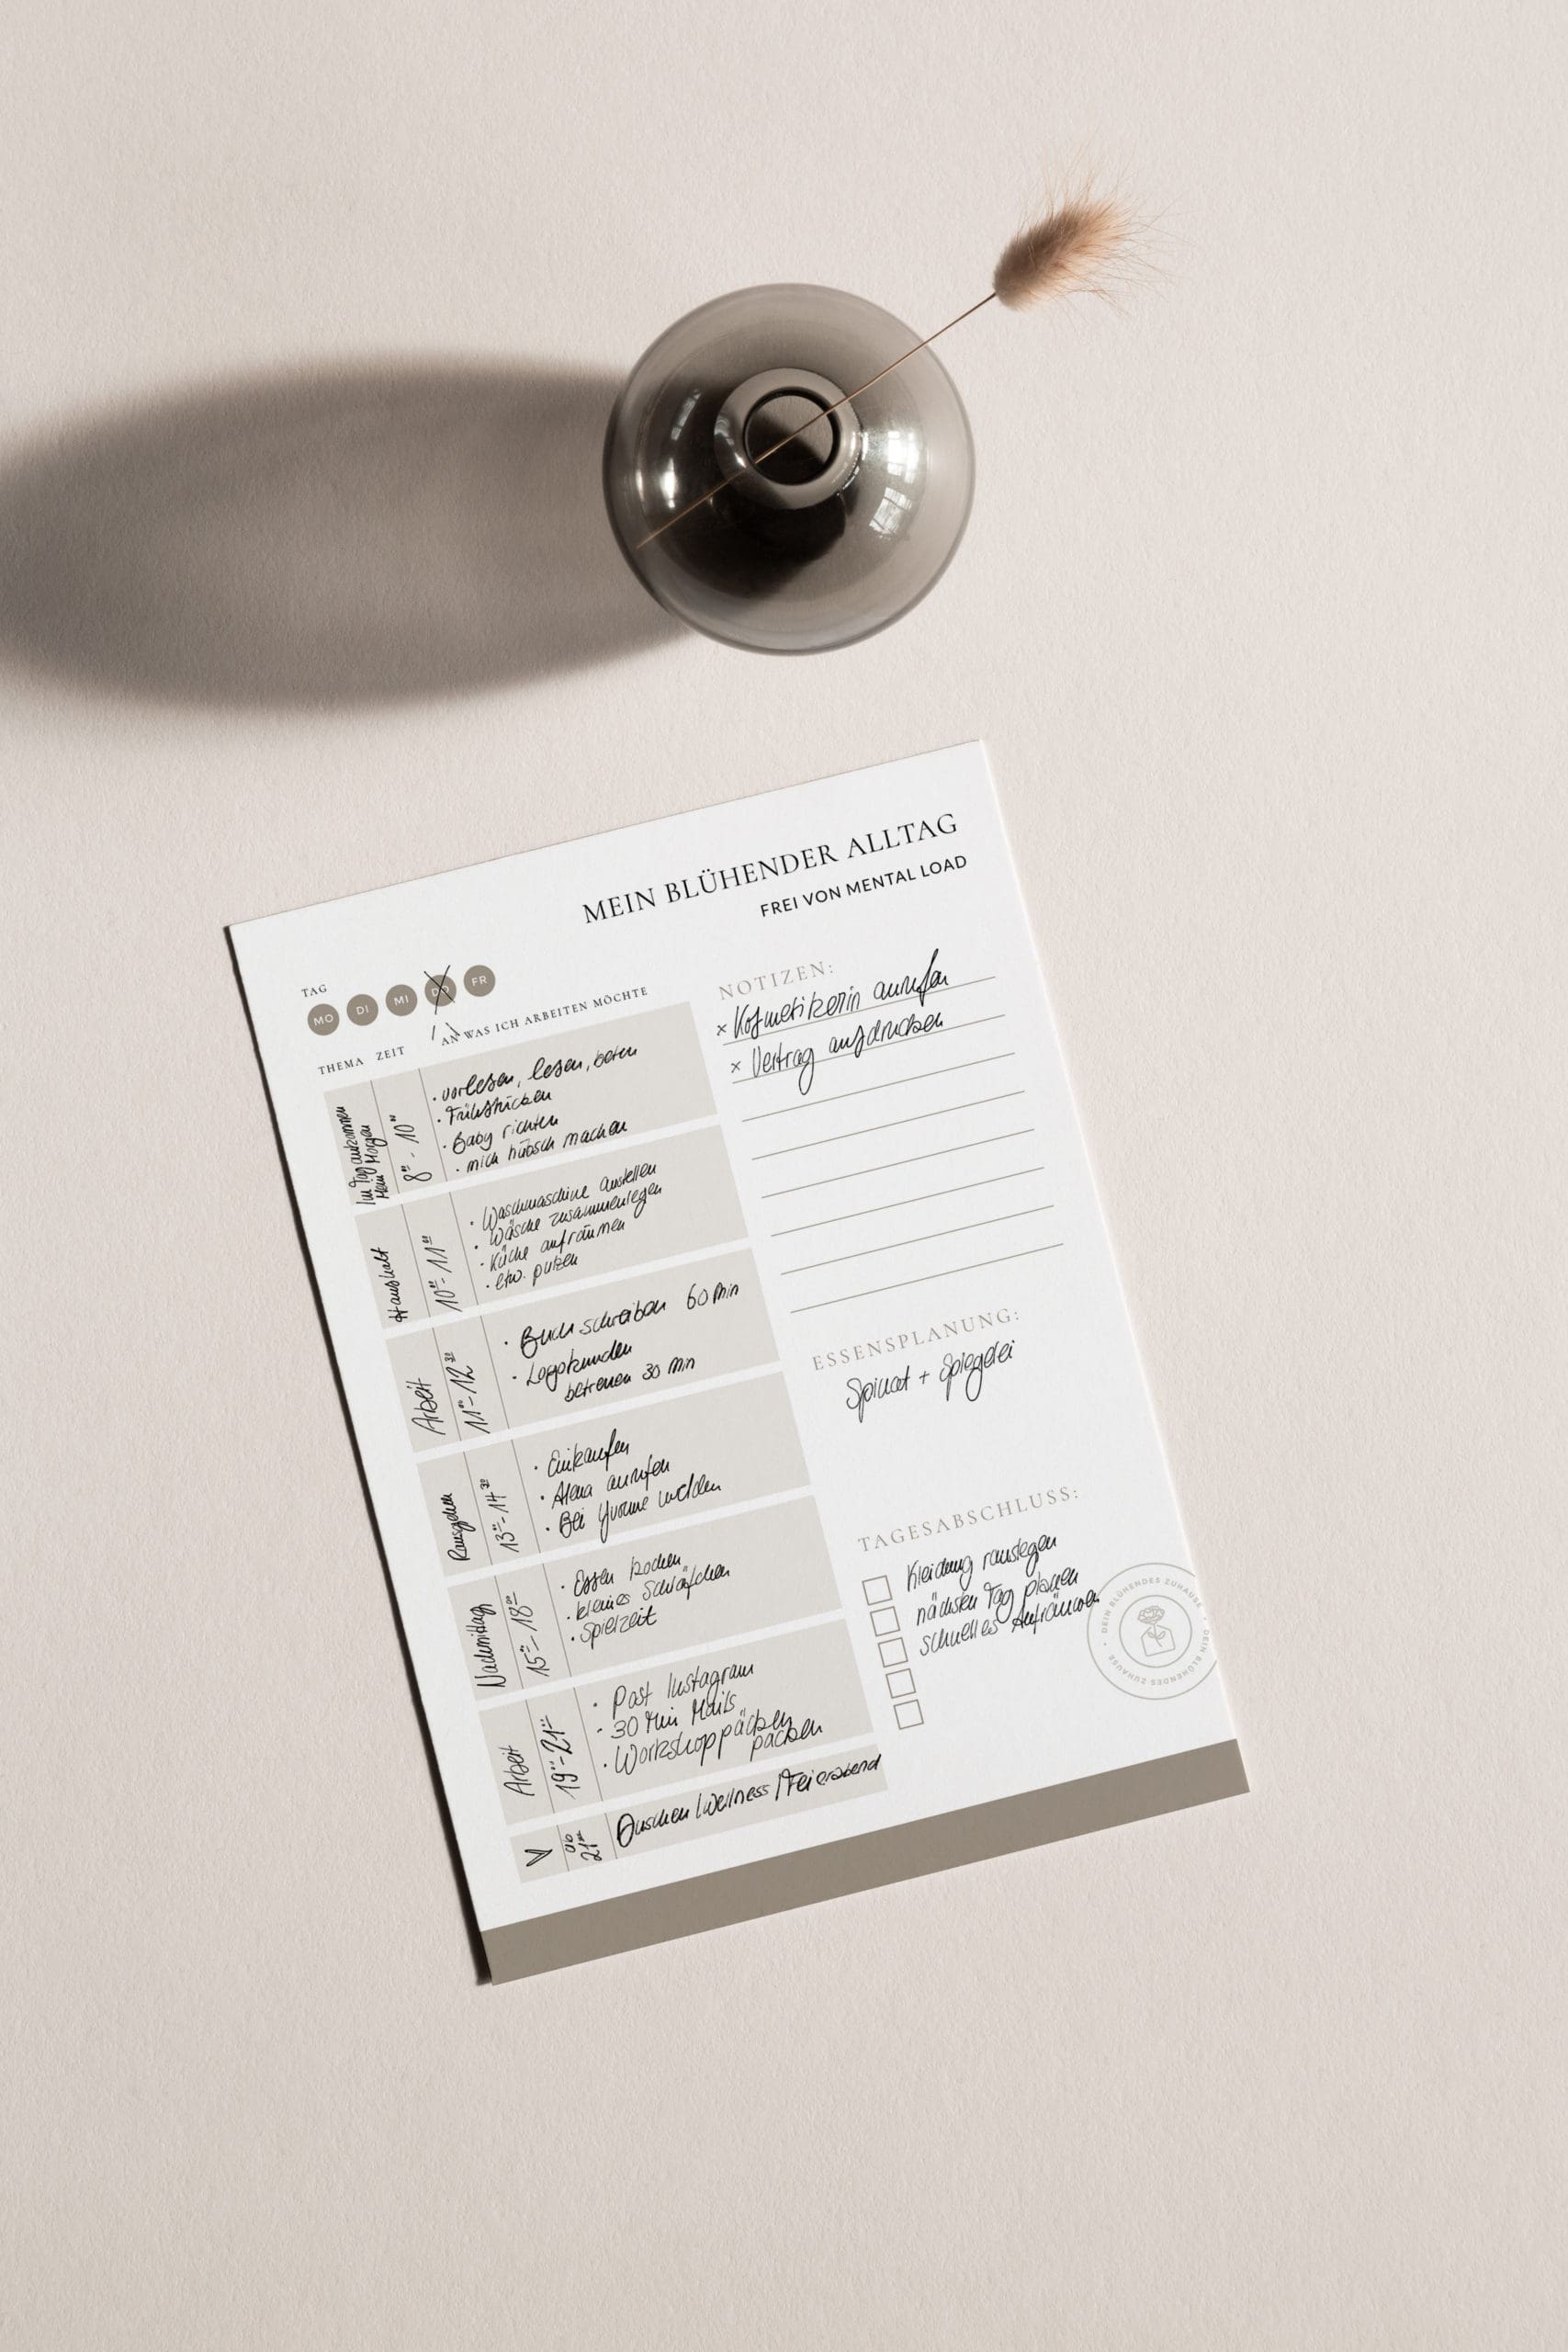 MEIN BLÜHENDER ALLTAG
FREI VON MENTAL LOAD
TAG
MO DI MI DO FR
THEMA ZEIT AN WAS ICH ARBEITEN MÖCHTE
Im Tag ankommen
Mein Morgen
8⁰⁰ - 10⁰⁰
· vorlesen, lesen, beten
· Frühstücken
· Baby richten
· mich hübsch machen
Haushalt
10⁰⁰ - 11⁰⁰
· Waschmaschine anstellen
· Wäsche zusammenlegen
· Küche aufräumen
· etw. putzen
Arbeit
11⁰⁰ - 12³⁰
· Buch schreiben 60 Min
· Logokunden
betreuen 30 Min
Rausgehen
13⁰⁰ - 14³⁰
· Einkaufen
· Alena anrufen
· Bei Yvonne melden
Nachmittag
15⁰⁰ - 18⁰⁰
· Essen kochen
· kleines Schläfchen
· Spielzeit
Arbeit
19⁰⁰ - 21⁰⁰
· Post Instagram
· 30 Min Mails
· Workshoppäckchen
packen
ab
21⁰⁰
Duschen / Wellness / Feierabend
NOTIZEN:
× Kosmetikerin anrufen
× Vertrag ausdrucken
ESSENSPLANUNG:
Spinat + Spiegelei
TAGESABSCHLUSS:
Kleidung rauslegen
nächsten Tag planen
schnelles Aufräumen
DEIN BLÜHENDES ZUHAUSE · DEIN BLÜHENDES ZUHAUSE ·